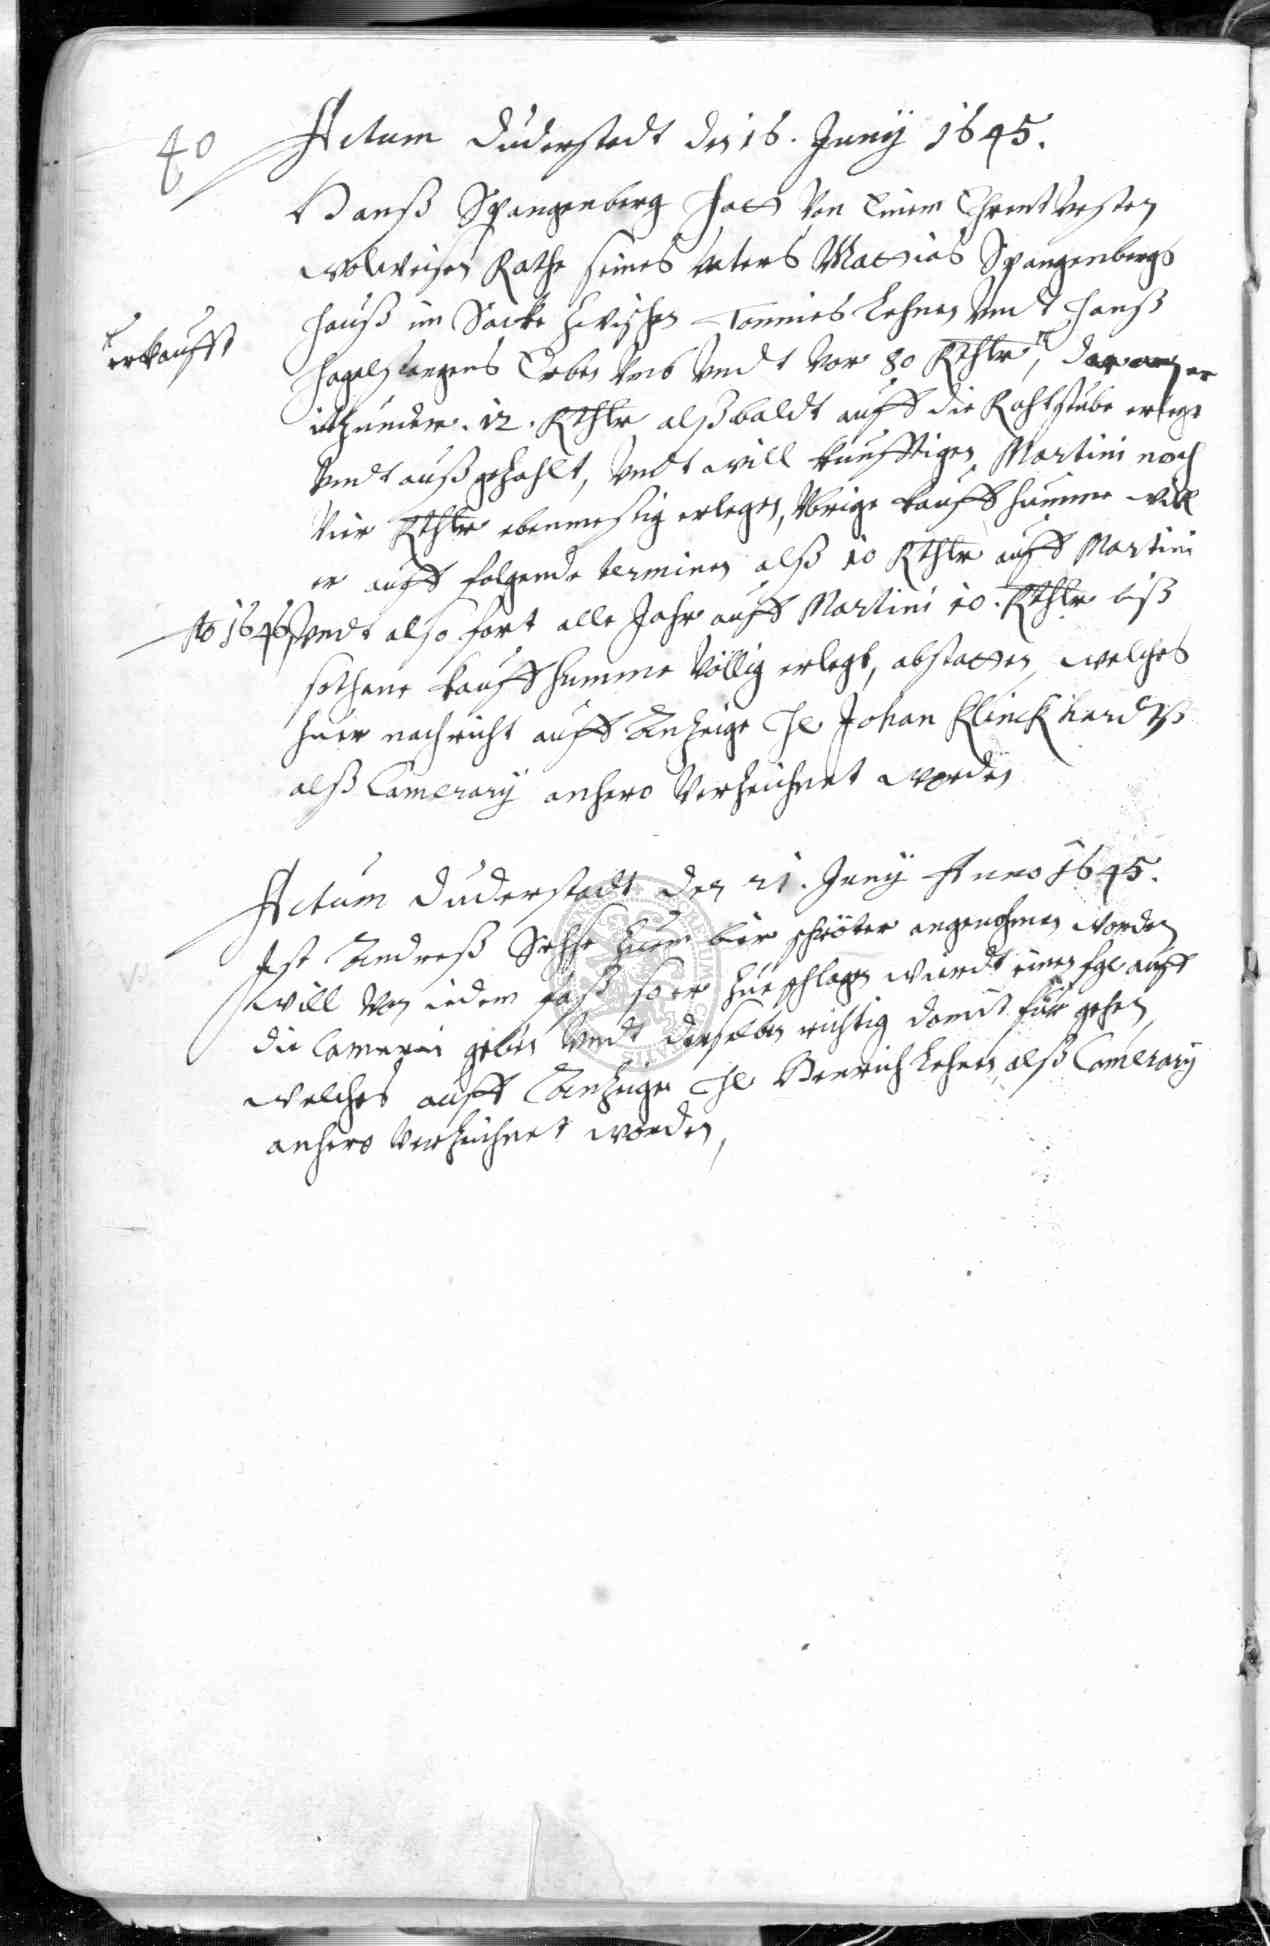 40
Actum Duderstadt den 16. Juny 1645.
Hanß Spangenberg hatt von Einem Ehrentvesten
wolweisen Rathe seines vaters Mattias Spangenbergs
hauß im Sacke zwischen Tonnies Lehnen vndt Hanß
erkaufft
Erben vmb vndt vor 80 Rthlr, daran er
itzunder 12. Rthlr alßbaldt auff die Rahtstube erlegt
vndt außgezahlt, vndt will kunfftigen Martini noch
vier Rthlr ebenmeßig erlegen, vbrige kauffsumme will
er auff folgende terminen alß 10 Rthlr auff Martini
Ao 1646 vndt also fort alle Jahr auff Martini 10. Rthlr biß
sothane kauffsumme völlig erlegt, abstatten, welches
zuer nachricht auff Anzeige H. Johan Klinckhardts
alß Camerary anhero verzeichnet worden
Actum Duderstadt den 21. Juny Anno 1645.
Ist Andreß zum bier schröter angenohmen worden
will von iedem faß so er zueschlagen wurdt einen auff
die Camerei geben vndt derselben richtig damit für gehen,
welches auff Anzeige H. Henrich Lehnen alß Camerary
anhero verzeichnet worden,